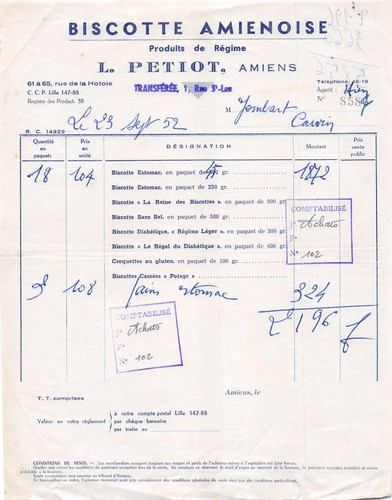 BISCOTTE AMIENOISE
Produits de Régime
L. PETIOT, AMIENS
61 à 65, rue de la Hotoie
C. C. P. Lille 147-88
Registre des Product. 59
TRANSFÉRÉE, 1, Rue St-Leu
Téléphone
Agent :
N° 8589
M Jombart
Carvin
Le 23 Sept 52
R. C. 14929
Quantité en paquets
Prix en unité
DÉSIGNATION
Montant
Prix vente public
18 104 Biscotte Estomac, en paquet de gr. 1872
Biscotte Estomac, en paquet de 250 gr.
Biscotte « La Reine des Biscottes », en paquet de 300 gr.
Biscotte Sans Sel, en paquet de 300 gr.
Biscotte Diabétique, « Régime Léger », en paquet de 300 gr.
Biscotte « Le Régal du Diabétique », en paquet de 400 gr.
Croquettes au gluten, en paquet de 100 gr.
Biscottes Cassées « Potage »
COMPTABILISÉ
Achats
N° 102
3 108 Pains Estomac 324
2196
COMPTABILISÉ
Achats
N° 102
Amiens, le
T. T. comprises
Valeur en votre règlement
à notre compte postal Lille 147-88
par chèque bancaire
par traite au
CONDITIONS DE VENTE. — Les marchandises voyagent toujours aux risques et périls de l'acheteur même si l'expédition est faite franco.